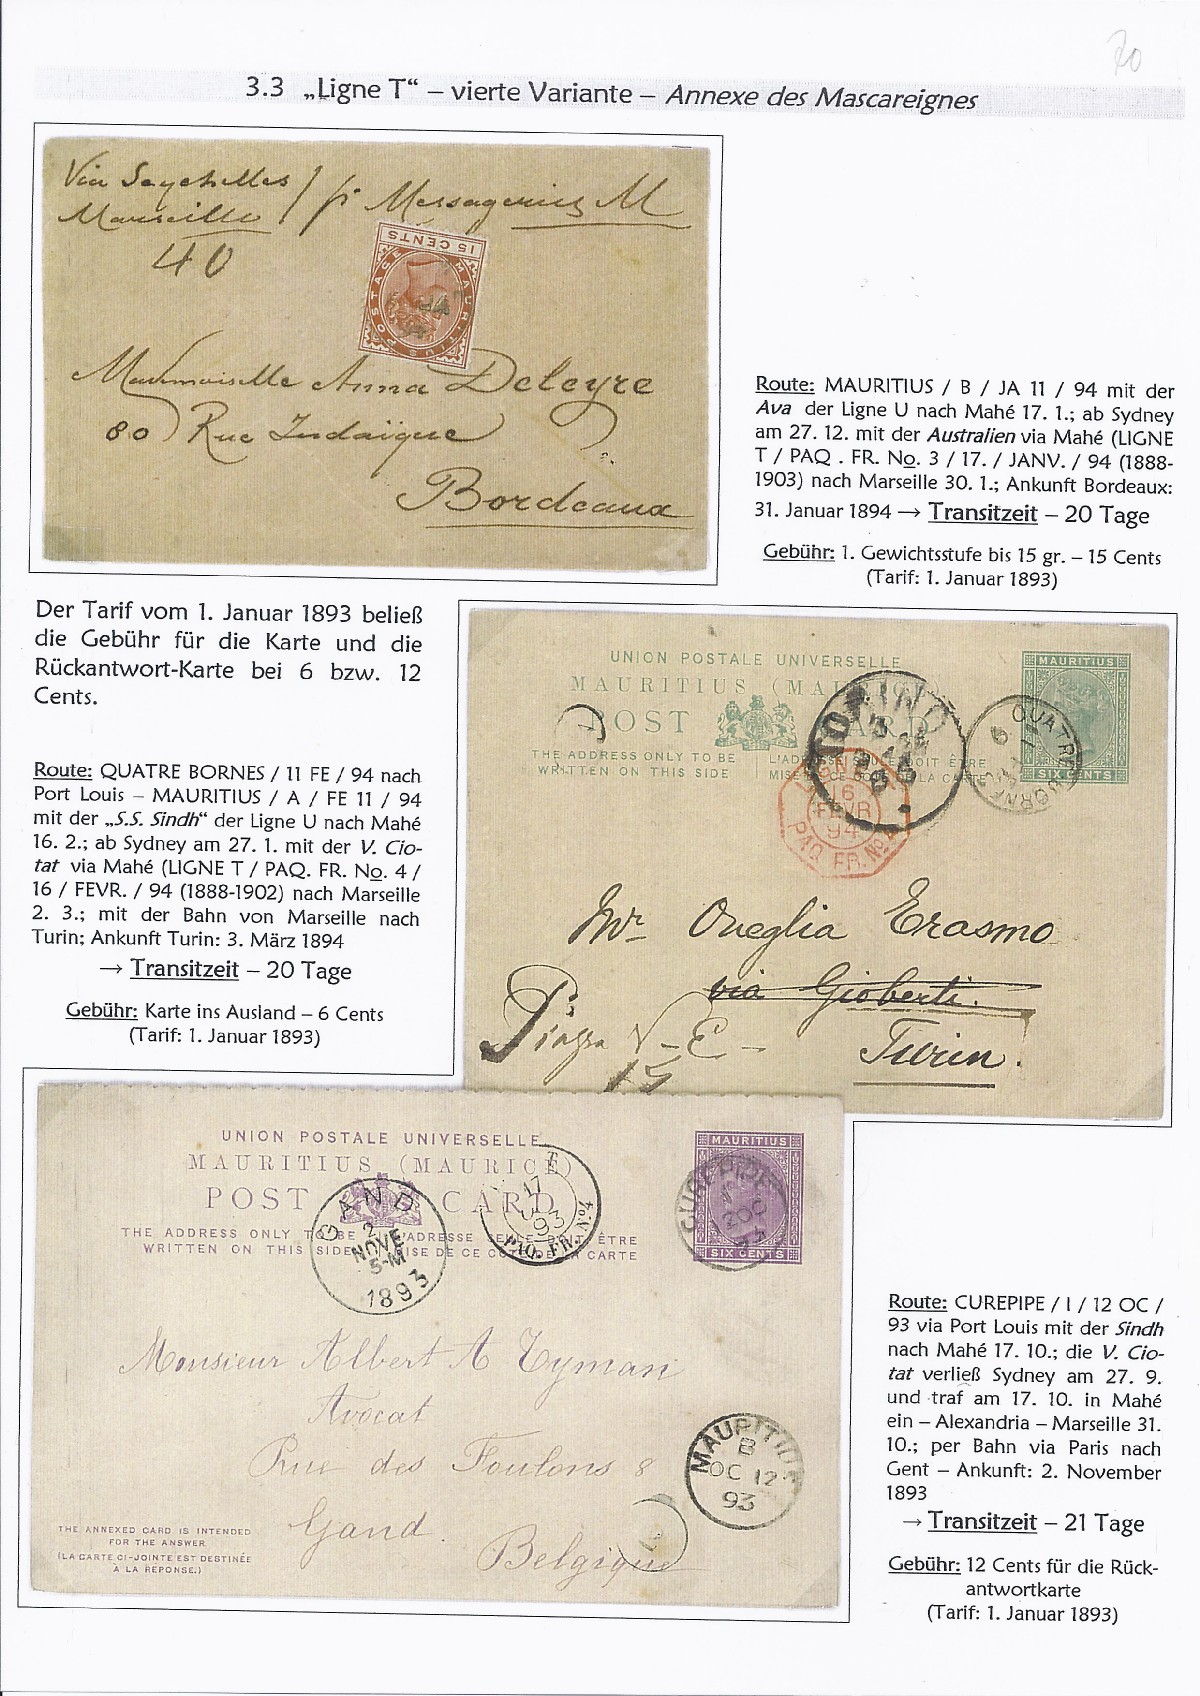 20
3.3 „Ligne T“ – vierte Variante – Annexe des Mascareignes
Via Seychelles / pr Messageries M
Marseille
40
15 CENTS
MAURITIUS POSTAGE
Mademoiselle Anna Deleyre
80 Rue Judaïque
Bordeaux
Route: MAURITIUS / B / JA 11 / 94 mit der
Ava der Ligne U nach Mahé 17. 1.; ab Sydney
am 27. 12. mit der Australien via Mahé (LIGNE
T / PAQ . FR. No. 3 / 17. / JANV. / 94 (1888-
1903) nach Marseille 30. 1.; Ankunft Bordeaux:
31. Januar 1894 → Transitzeit – 20 Tage
Gebühr: 1. Gewichtsstufe bis 15 gr. – 15 Cents
(Tarif: 1. Januar 1893)
Der Tarif vom 1. Januar 1893 beließ
die Gebühr für die Karte und die
Rückantwort-Karte bei 6 bzw. 12
Cents.
Route: QUATRE BORNES / 11 FE / 94 nach
Port Louis – MAURITIUS / A / FE 11 / 94
mit der „S.S. Sindh“ der Ligne U nach Mahé
16. 2.; ab Sydney am 27. 1. mit der V. Cio-
tat via Mahé (LIGNE T / PAQ. FR. No. 4 /
16 / FEVR. / 94 (1888-1902) nach Marseille
2. 3.; mit der Bahn von Marseille nach
Turin; Ankunft Turin: 3. März 1894
→ Transitzeit – 20 Tage
Gebühr: Karte ins Ausland – 6 Cents
(Tarif: 1. Januar 1893)
UNION POSTALE UNIVERSELLE
MAURITIUS (MAURICE)
POST CARD
THE ADDRESS ONLY TO BE
WRITTEN ON THIS SIDE
L'ADRESSE SEULE DOIT ÊTRE
MISE DE CE CÔTÉ DE LA CARTE
MAURITIUS
SIX CENTS
TORINO
QUATRE BORNES
16
FEVR
94
PAQ. FR. No 4
Mr Oneglia Erasmo
via Gioberti.
Piazza V – E –
15
Turin.
UNION POSTALE UNIVERSELLE
MAURITIUS (MAURICE)
POST CARD
THE ADDRESS ONLY TO BE
WRITTEN ON THIS SIDE
L'ADRESSE SEULE DOIT ÊTRE
MISE DE CE CÔTÉ DE LA CARTE
MAURITIUS
SIX CENTS
CUREPIPE
GAND
2
NOVE
5-M
1893
17
93
PAQ. FR. No 4
Monsieur Albert A Eyman
Avocat
Rue des Foulons 8
Gand
Belgique
MAURITIUS
B
OC 12
93
THE ANNEXED CARD IS INTENDED
FOR THE ANSWER.
(LA CARTE CI-JOINTE EST DESTINÉE
À LA REPONSE.)
Route: CUREPIPE / I / 12 OC /
93 via Port Louis mit der Sindh
nach Mahé 17. 10.; die V. Cio-
tat verließ Sydney am 27. 9.
und traf am 17. 10. in Mahé
ein – Alexandria – Marseille 31.
10.; per Bahn via Paris nach
Gent – Ankunft: 2. November
1893
→ Transitzeit – 21 Tage
Gebühr: 12 Cents für die Rück-
antwortkarte
(Tarif: 1. Januar 1893)